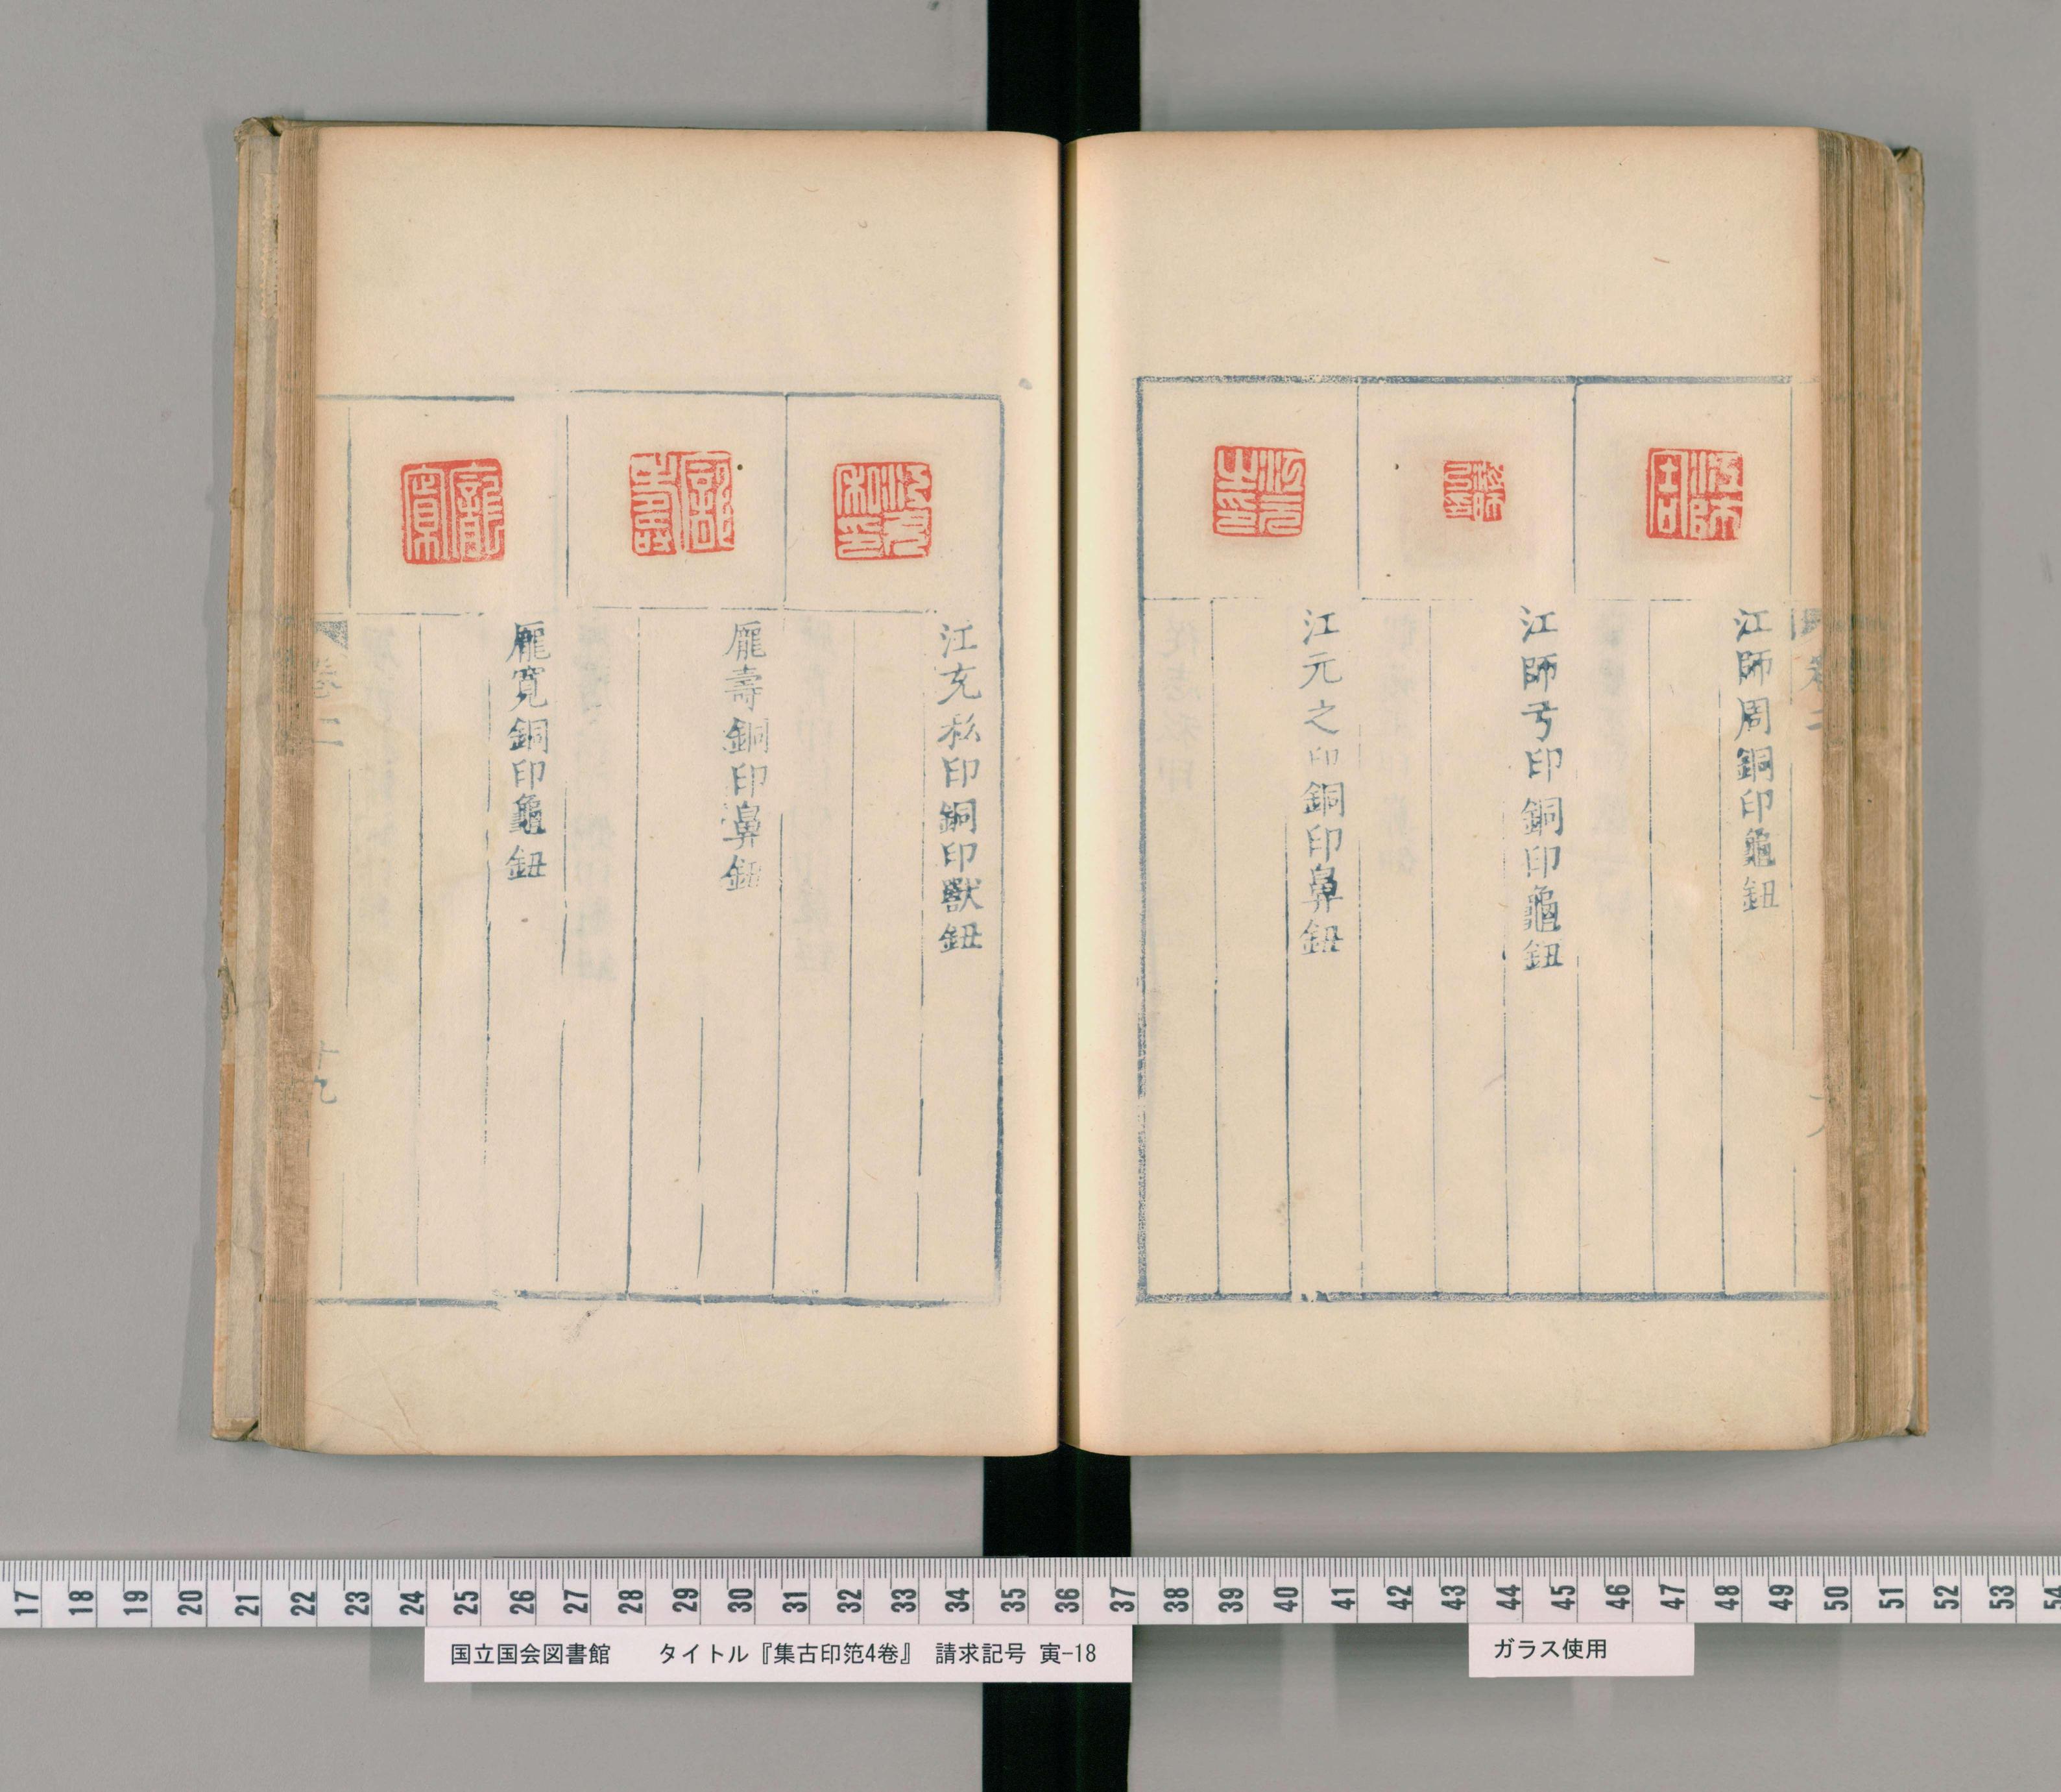 江師周銅印龜鈕
江師䒑印銅印龜鈕
江元之印銅印鼻鈕
江充私印銅印獸鈕
龐壽銅印鼻鈕
龐寬銅印龜鈕
卷二
十九
17 18 19 20 21 22 23 24 25 26 27 28 29 30 31 32 33 34 35 36 37 38 39 40 41 42 43 44 45 46 47 48 49 50 51 52 53 54
国立国会図書館 タイトル『集古印笵4巻』 請求記号 寅-18
ガラス使用